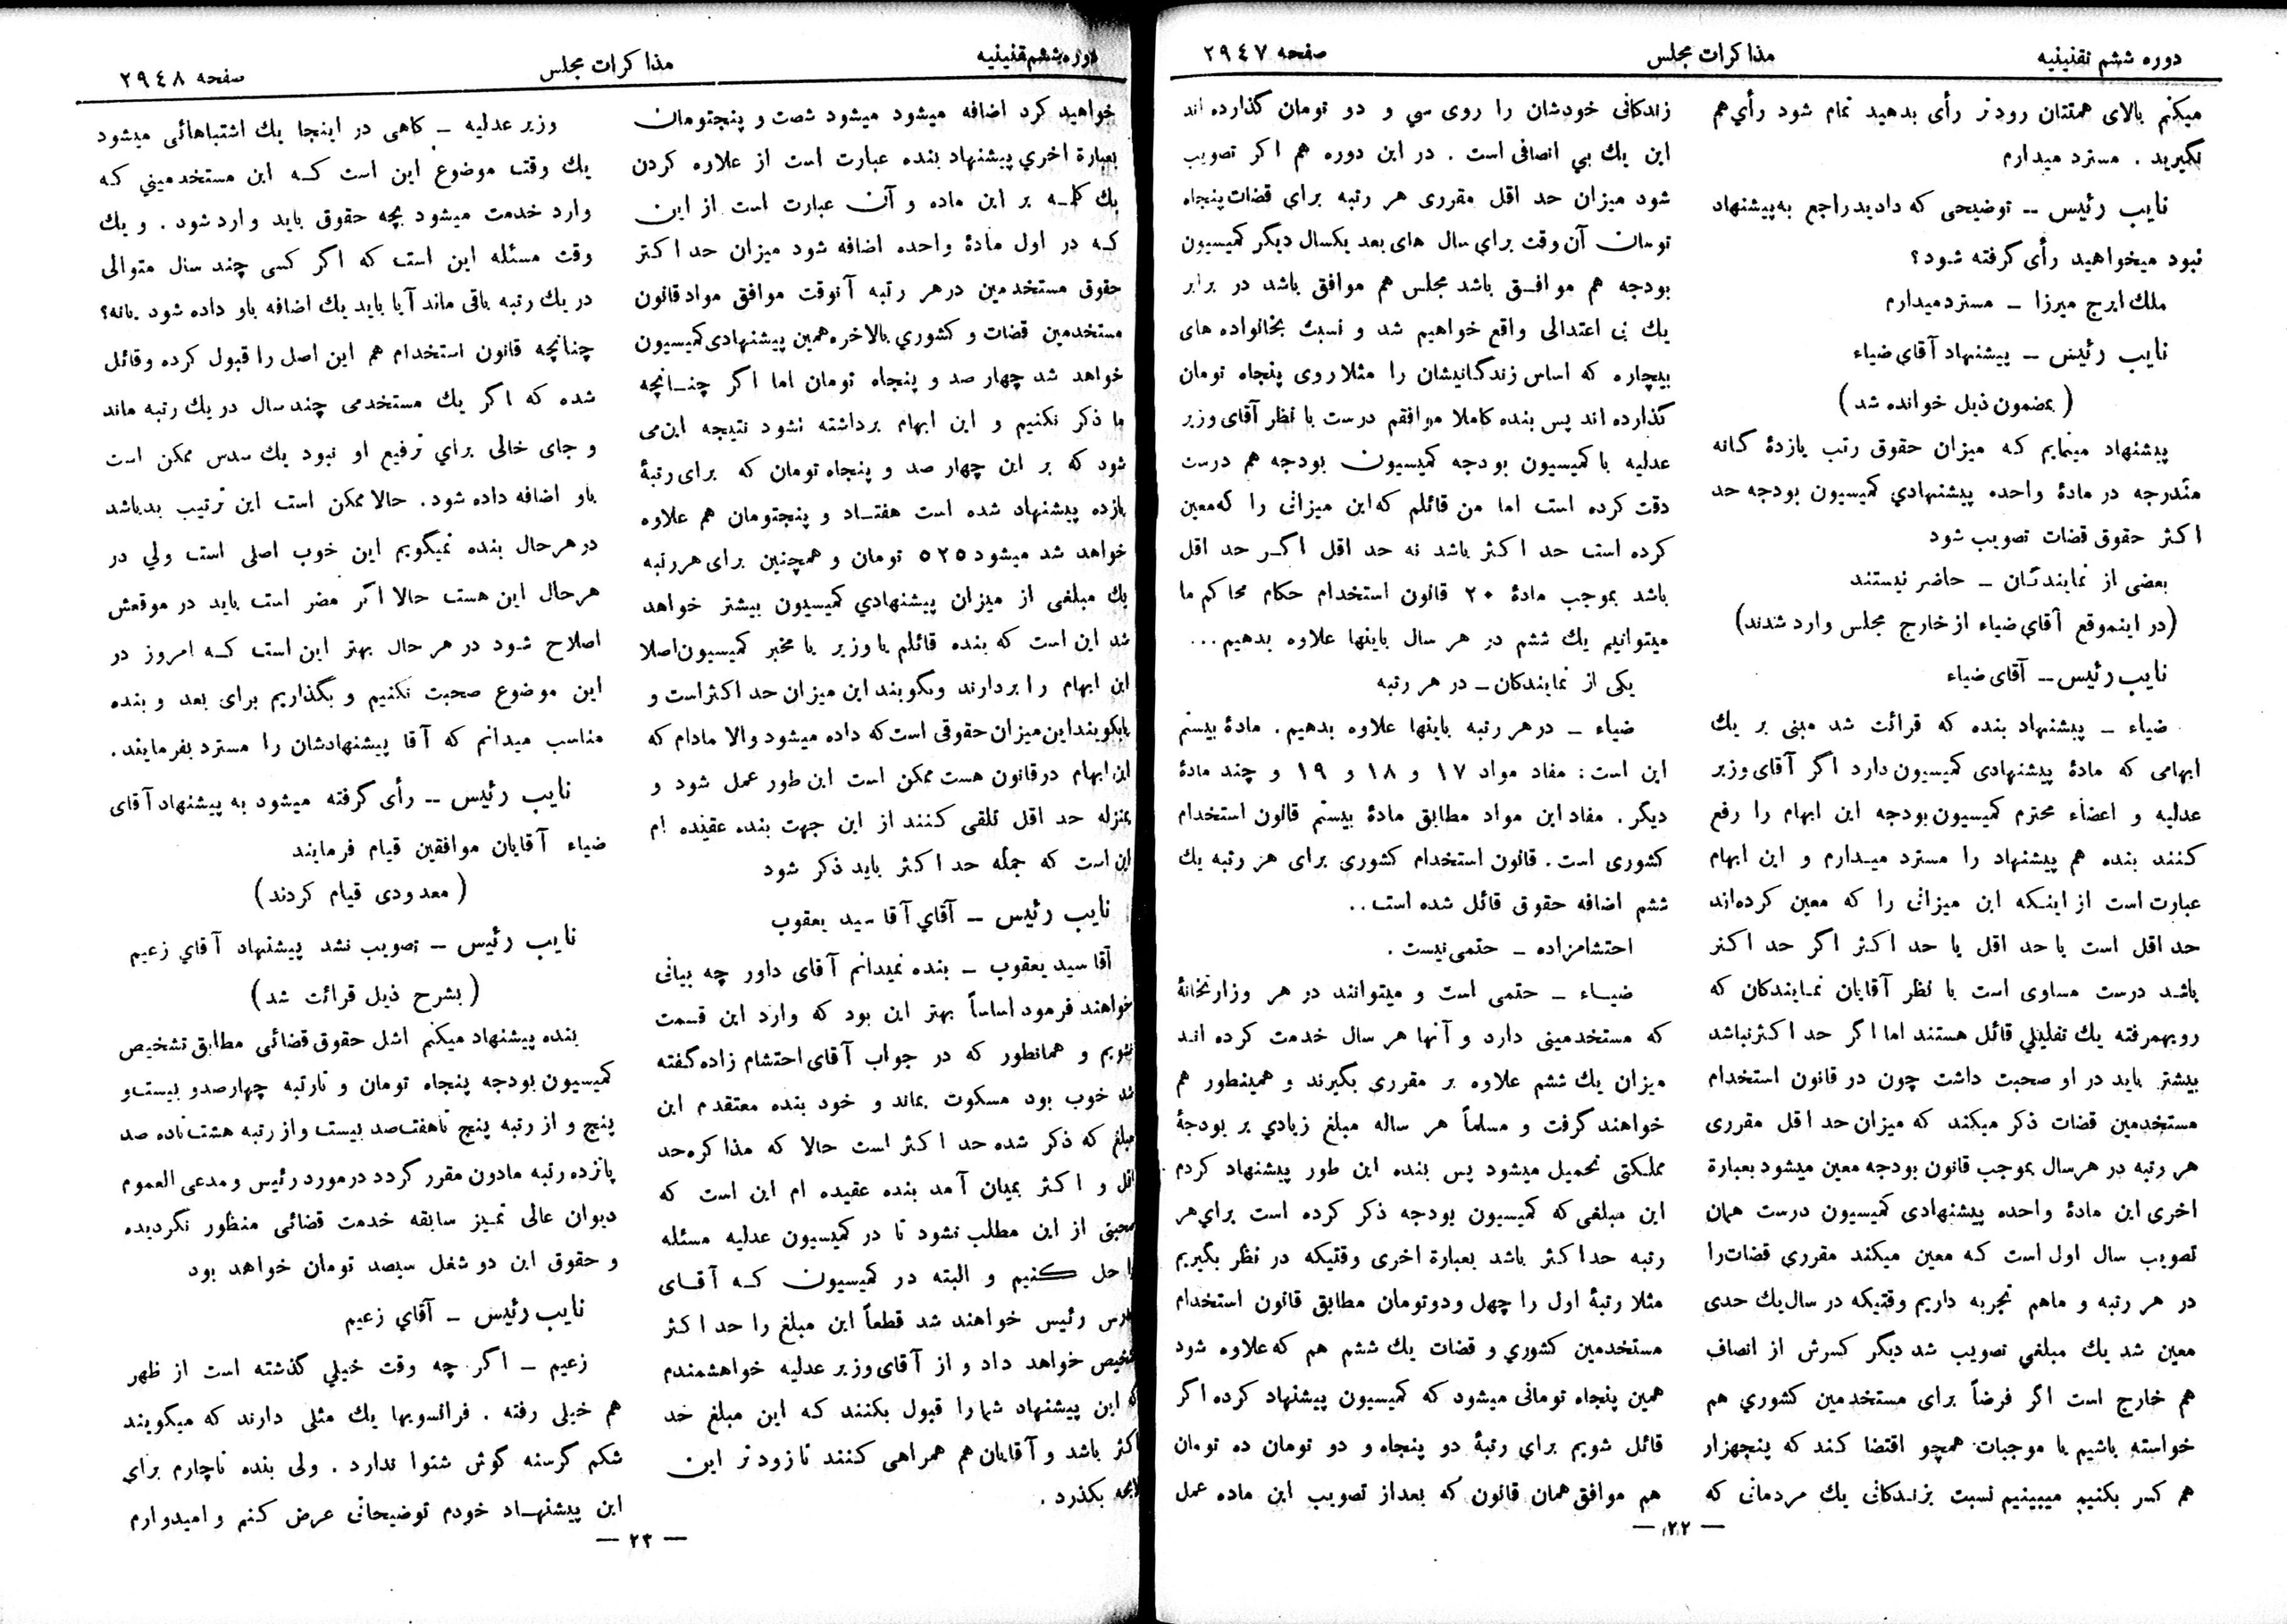 دوره ششم تقنینیه
مذاکرات مجلس
صفحه ۲۹۴۷
میکنم بالای همتتان زودتر رأی بدهید تمام شود رأی هم
بگیرید . مسترد میدارم
نایب رئیس – توضیحی که دادید راجع به پیشنهاد
نبود میخواهید رأی گرفته شود؟
ملك ایرج میرزا – مسترد میدارم
نایب رئیس – پیشنهاد آقای ضیاء
( بمضمون ذیل خوانده شد )
پیشنهاد مینمایم که میزان حقوق رتب یازدۀ گانه
مندرجه در مادۀ واحده پیشنهادی کمیسیون بودجه حد
اکثر حقوق قضات تصویب شود
بعضی از نمایندگان – حاضر نیستند
(در اینموقع آقای ضیاء از خارج مجلس وارد شدند)
نایب رئیس – آقای ضیاء
ضیاء – پیشنهاد بنده که قرائت شد مبنی بر یك
ابهامی که مادۀ پیشنهادی کمیسیون دارد اگر آقای وزیر
عدلیه و اعضاء محترم کمیسیون بودجه این ابهام را رفع
کنند بنده هم پیشنهاد را مسترد میدارم و این ابهام
عبارت است از اینکه این میزانی را که معین کرده‌اند
حد اقل است یا حد اقل یا حد اکثر اگر حد اکثر
باشد درست مساوی است با نظر آقایان نمایندکان که
رویهمرفته یك تقلیلی قائل هستند اما اگر حد اکثر نباشد
بیشتر باید در او صحبت داشت چون در قانون استخدام
مستخدمین قضات ذکر میکند که میزان حد اقل مقرری
هر رتبه در هر سال بموجب قانون بودجه معین میشود بعبارة
اخری این مادۀ واحده پیشنهادی کمیسیون درست همان
تصویب سال اول است که معین میکند مقرری قضات را
در هر رتبه و ماهم تجربه داریم وقتیکه در سال یك حدی
معین شد یك مبلغی تصویب شد دیگر کسرش از انصاف
هم خارج است اگر فرضاً برای مستخدمین کشوری هم
خواسته باشیم یا موجبات همچو اقتضا کند که پنجهزار
هم کسر بکنیم میبینیم نسبت بزندکانی یك مردمانی که
زندکانی خودشان را روی سی و دو تومان گذارده اند
این یك بی انصافی است . در این دوره هم اکر تصویب
شود میزان حد اقل مقرری هر رتبه برای قضات پنجاه
تومان آن وقت برای سال های بعد یکسال دیگر کمیسیون
بودجه هم موافق باشد مجلس هم موافق باشد در برابر
یك بی اعتدالی واقع خواهیم شد و نسبت بخانواده های
بیچاره که اساس زندگانیشان را مثلا روی پنجاه تومان
گذارده اند پس بنده کاملا موافقم درست با نظر آقای وزیر
عدلیه با کمیسیون بودجه کمیسیون بودجه هم درست
دقت کرده است اما من قائلم که این میزانی را که معین
کرده است حد اکثر باشد نه حد اقل اگر حد اقل
باشد بموجب مادۀ ۲۰ قانون استخدام حکام محاکم ما
میتوانیم یك ششم در هر سال باینها علاوه بدهیم...
یکی از نمایندکان – در هر رتبه
ضیاء – در هر رتبه باینها علاوه بدهیم. مادۀ بیستم
این است: مفاد مواد ۱۷ و ۱۸ و ۱۹ و چند مادۀ
دیگر . مفاد این مواد مطابق مادۀ بیستم قانون استخدام
کشوری است . قانون استخدام کشوری برای هر رتبه یك
ششم اضافه حقوق قائل شده است..
احتشامزاده – حتمی نیست .
ضیاء – حتمی است و میتوانند در هر وزارتخانۀ
که مستخدمینی دارد و آنها هر سال خدمت کرده اند
میزان یك ششم علاوه بر مقرری بگیرند و همینطور هم
خواهند گرفت و مسلماً هر ساله مبلغ زیادی بر بودجۀ
مملکتی تحمیل میشود پس بنده این طور پیشنهاد کردم
این مبلغی که کمیسیون بودجه ذکر کرده است برای هر
رتبه حد اکثر باشد بعبارة اخری وقتیکه در نظر بگیریم
مثلا رتبۀ اول را چهل و دو تومان مطابق قانون استخدام
مستخدمین کشوری و قضات یك ششم هم که علاوه شود
همین پنجاه تومانی میشود که کمیسیون پیشنهاد کرده اکر
قائل شویم برای رتبۀ دو پنجاه و دو تومان ده تومان
هم موافق همان قانون که بعد از تصویب این ماده عمل
– ۲۲ –
دوره ششم تقنینیه
مذاکرات مجلس
صفحه ۲۹۴۸
خواهید کرد اضافه میشود میشود شصت و پنجتومان
بعبارة اخری پیشنهاد بنده عبارت است از علاوه کردن
یك کلمه بر این ماده و آن عبارت است از این
که در اول مادۀ واحده اضافه شود میزان حد اکثر
حقوق مستخدمین در هر رتبه آنوقت موافق مواد قانون
مستخدمین قضات و کشوری بالاخره همین پیشنهادی کمیسیون
خواهد شد چهار صد و پنجاه تومان اما اگر چنانچه
ما ذکر نکنیم و این ابهام برداشته نشود نتیجه این می
شود که بر این چهار صد و پنجاه تومان که برای رتبۀ
یازده پیشنهاد شده است هفتاد و پنجتومان هم علاوه
خواهد شد میشود ۵۲۵ تومان و همچنین برای هر رتبه
یك مبلغی از میزان پیشنهادی کمیسیون بیشتر خواهد
شد این است که بنده قائلم یا وزیر یا مخبر کمیسیون اصلا
این ابهام را بردارند وبگویند این میزان حد اکثر است و
یا بکویند این میزان حقوقی است که داده میشود والا مادام که
این ابهام در قانون هست ممکن است این طور عمل شود و
بمنزله حد اقل تلقی کنند از این جهت بنده عقیده ام
این است که جمله حد اکثر باید ذکر شود
نایب رئیس – آقای آقا سید یعقوب
آقا سید یعقوب – بنده نمیدانم آقای داور چه بیانی
خواهند فرمود اساساً بهتر این بود که وارد این قسمت
نشویم و همانطور که در جواب آقای احتشام زاده گفته
شد خوب بود مسکوت بماند و خود بنده معتقدم این
مبلغ که ذکر شده حد اکثر است حالا که مذاکره حد
اقل و اکثر بمیان آمد بنده عقیده ام این است که
صحبتی از این مطلب نشود تا در کمیسیون عدلیه مسئله
را حل کنیم و البته در کمیسیون که آقای
مدرس رئیس خواهند شد قطعاً این مبلغ را حد اکثر
تشخیص خواهد داد و از آقای وزیر عدلیه خواهشمندم
که این پیشنهاد شما را قبول بکنند که این مبلغ حد
اکثر باشد و آقایان هم همراهی کنند تا زودتر این
لایحه بکذرد .
وزیر عدلیه – کاهی در اینجا یك اشتباهائی میشود
یك وقت موضوع این است که این مستخدمینی که
وارد خدمت میشود بچه حقوق باید وارد شود . و یك
وقت مسئله این است که اگر کسی چند سال متوالی
در یك رتبه باقی ماند آیا باید یك اضافه باو داده شود یانه؟
چنانچه قانون استخدام هم این اصل را قبول کرده وقائل
شده که اگر یك مستخدمی چند سال در یك رتبه ماند
و جای خالی برای ترفیع او نبود یك سدس ممکن است
باو اضافه داده شود. حالا ممکن است این ترتیب بد باشد
در هر حال بنده نمیگویم این خوب اصلی است ولی در
هر حال این هست حالا اگر مضر است باید در موقعش
اصلاح شود در هر حال بهتر این است که امروز در
این موضوع صحبت نکنیم و بگذاریم برای بعد و بنده
مناسب میدانم که آقا پیشنهادشان را مسترد بفرمایند.
نایب رئیس – رأی گرفته میشود به پیشنهاد آقای
ضیاء آقایان موافقین قیام فرمایند
( معدودی قیام کردند )
نایب رئیس – تصویب نشد پیشنهاد آقای زعیم
( بشرح ذیل قرائت شد )
بنده پیشنهاد میکنم اشل حقوق قضائی مطابق تشخیص
کمیسیون بودجه پنجاه تومان و تارتبه چهارصدو بیست و
پنج و از رتبه پنج تا هفت صد بیست و از رتبه هشت تاده صد
پانزده رتبه مادون مقرر گردد در مورد رئیس و مدعی العموم
دیوان عالی تمیز سابقه خدمت قضائی منظور نگردیده
و حقوق این دو شغل سیصد تومان خواهد بود
نایب رئیس – آقای زعیم
زعیم – اگر چه وقت خیلی گذشته است از ظهر
هم خیلی رفته . فرانسویها یك مثلی دارند که میگویند
شکم گرسنه گوش شنوا ندارد . ولی بنده ناچارم برای
این پیشنهاد خودم توضیحاتی عرض کنم و امیدوارم
– ۲۳ –